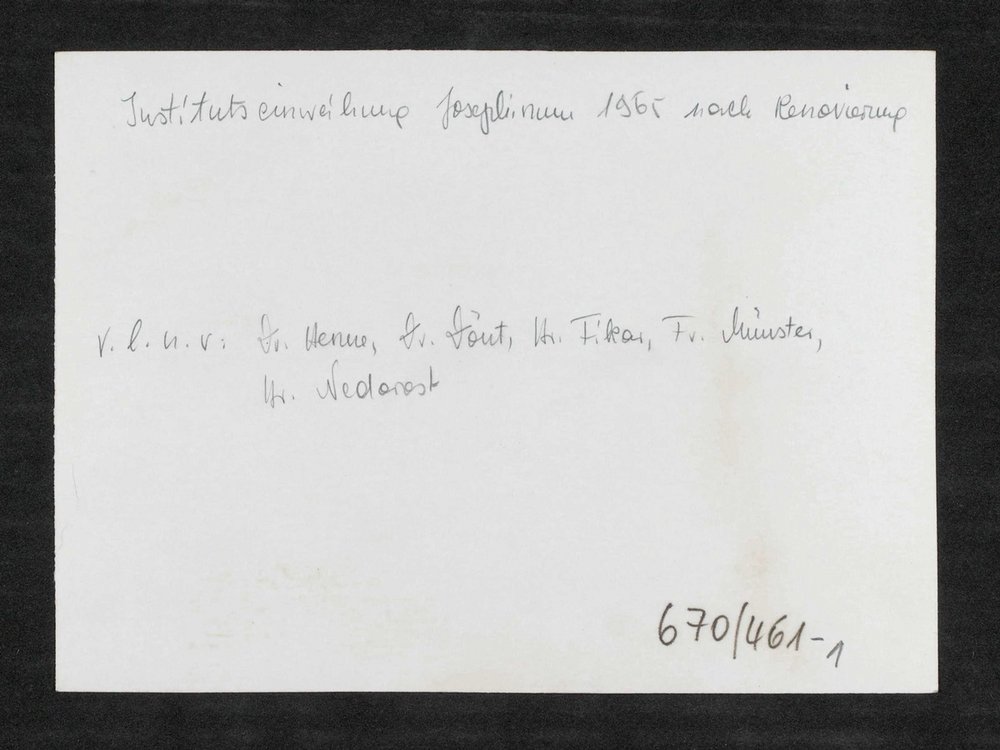 Institutseinweihung Josephinum 1965 nach Renovierung
v. l. n. r: Dr. Henne, Dr. Dönt, Hr. Fikar, Fr. Münster,
Hr. Nedorost
670/461-1